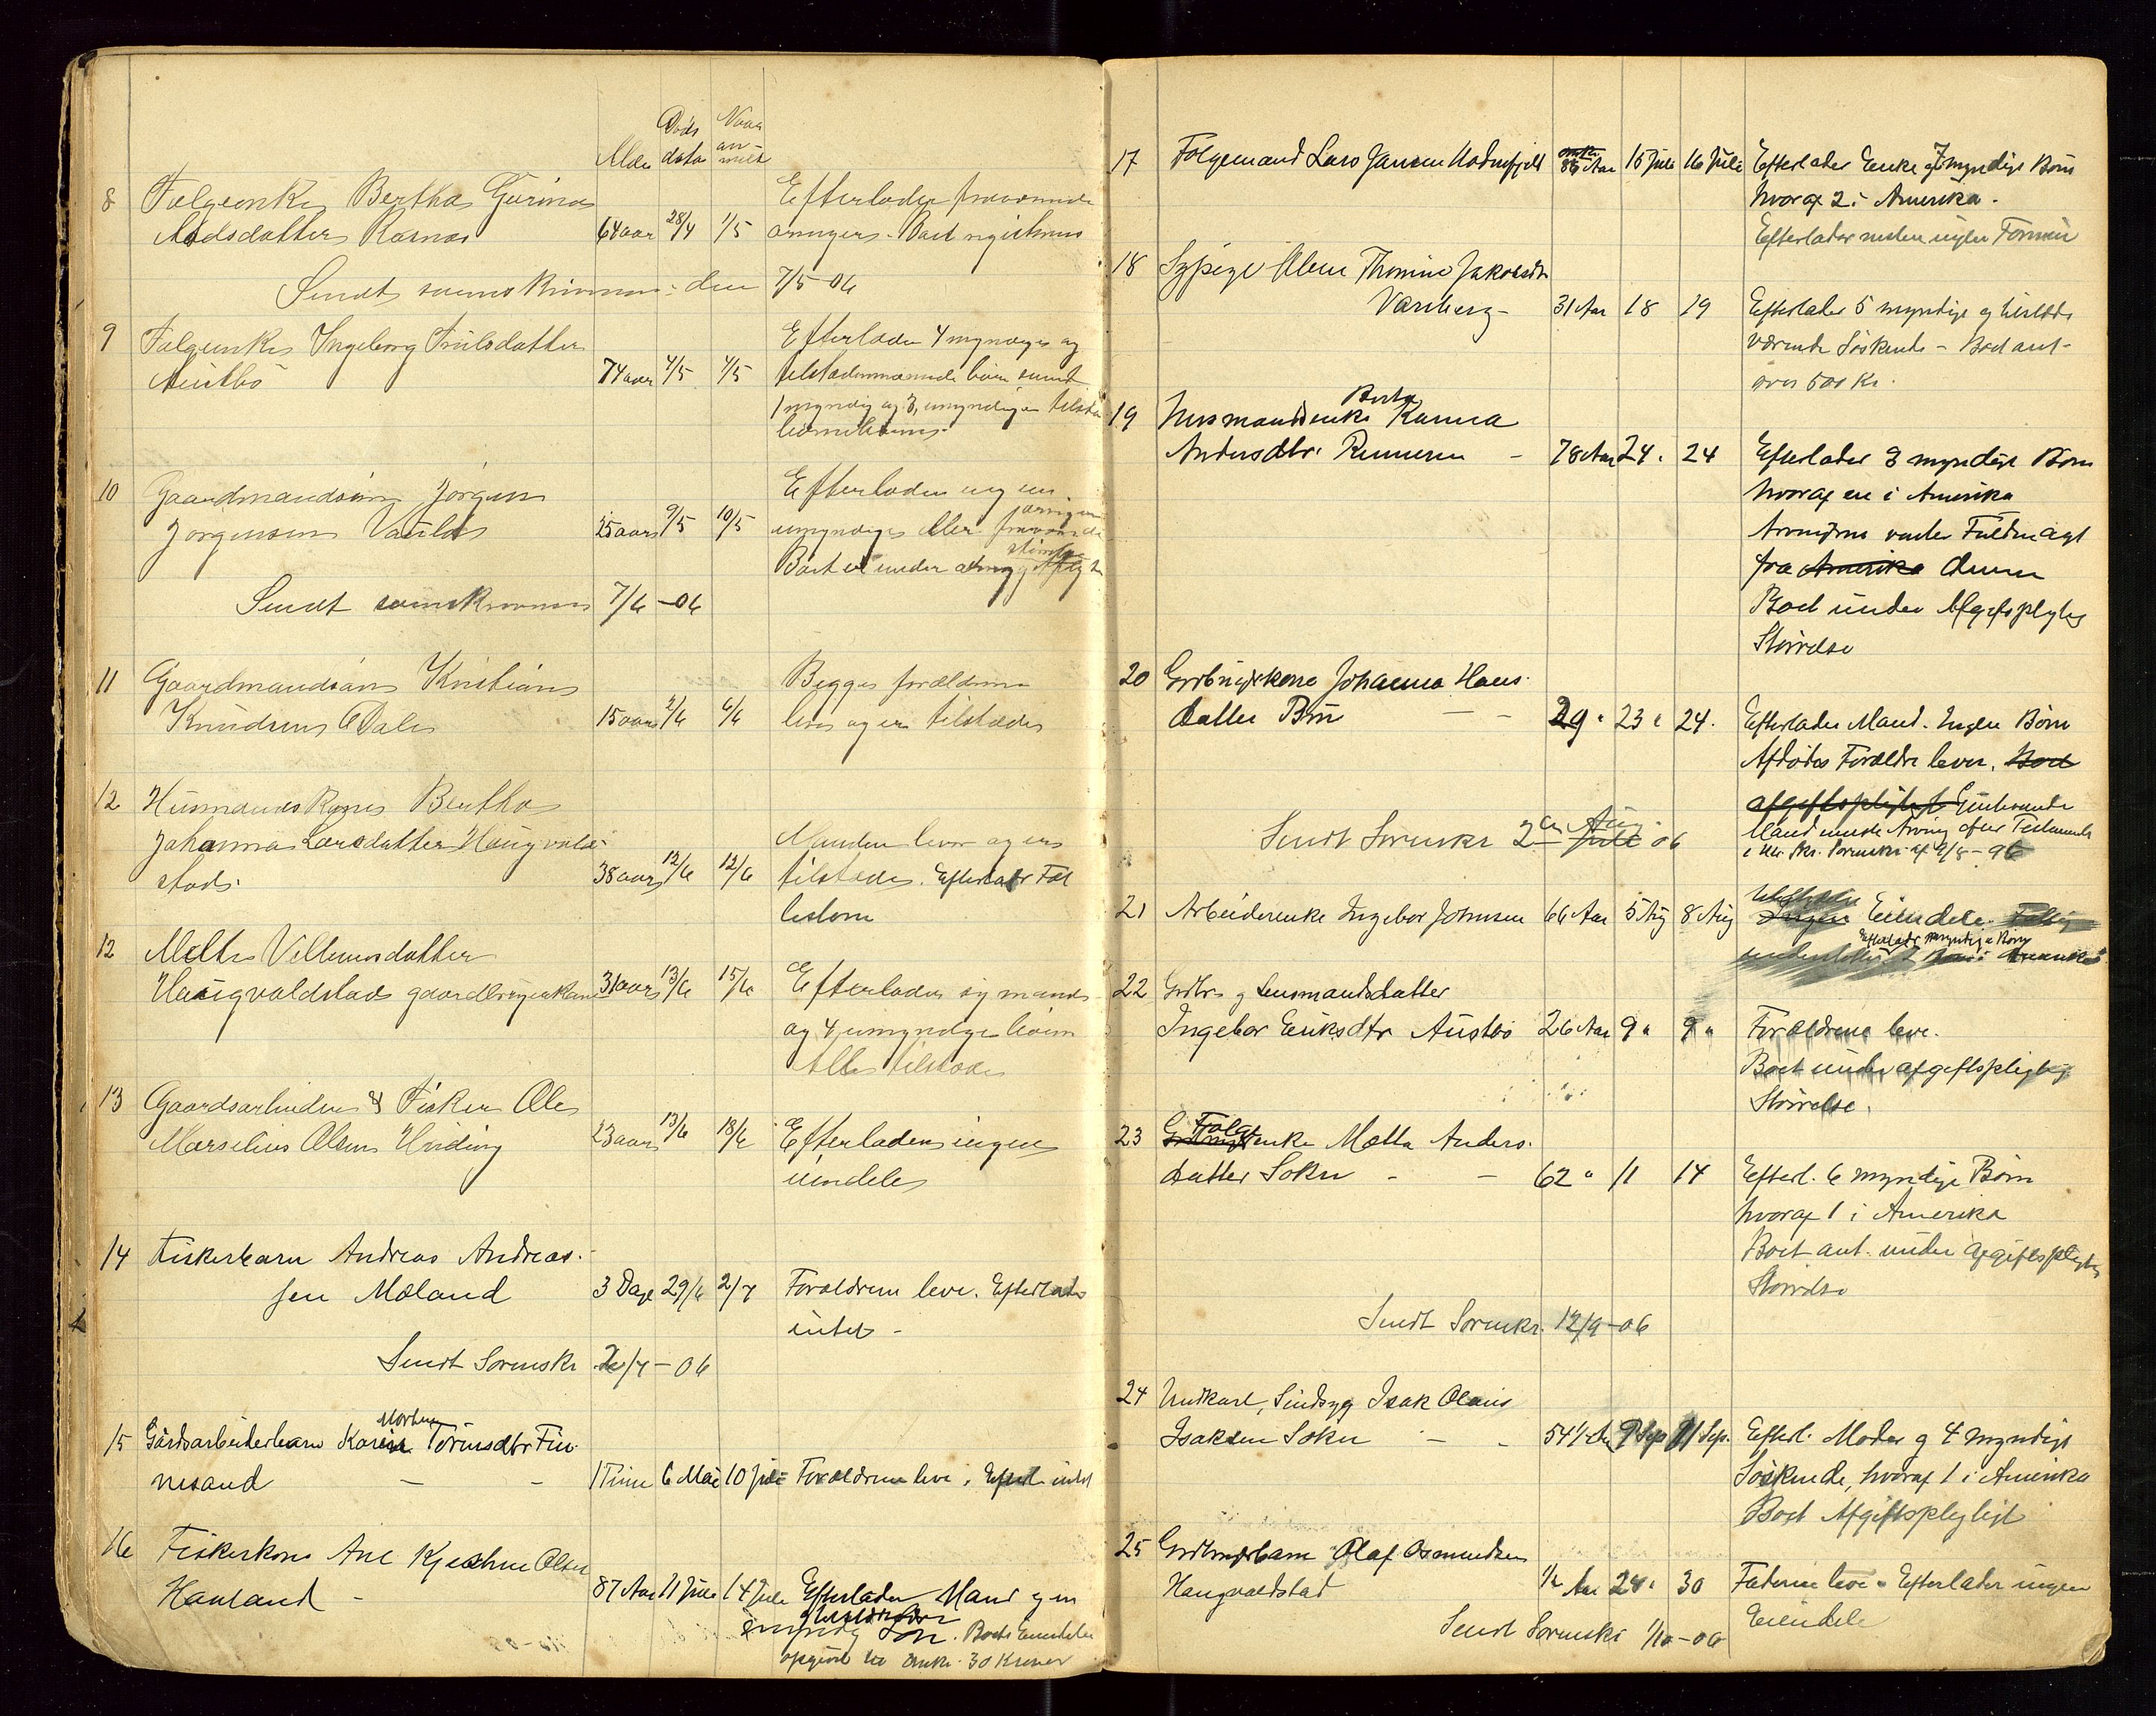 Alder
Døds dato
Naar an- meldt
8 Følgeenke Bertha Gurina Efterlader fraværende
Aadsdatter 64 aar 28/4 1/5 arvinger. Boet registreres
Sendt sorenskriveren den 7/5-06
9 Følgeenke Ingeborg Trulsdatter Efterlader 4 myndige og
Austbø 74 aar 4/5 4/5 tilstedeværende børn samt
1 myndig og 3 umyndige
børnebørn
10 Gaardmandsøn Jørgen Efterlader ingen
Jørgensen 25 aar 9/5 10/5 umyndige eller fraværende arvinger
Boet er under størrelse
Sendt sorenskriveren 7/6-06
11 Gaardmandsøn Kristian Begge forældrene
Knudsen Dale 15 aar 2/6 6/6 lever og er tilstede
12 Husmandskone Bertha
Johanna Larsdatter Haugvald- Manden lever og er
stad. 38 aar 12/6 12/6 tilstede. Efterlader Fæl
lesbørn
12 Mette Villumsdatter
Haugvaldstad gaardbrugerkone 31 aar 13/6 15/6 Efterlader sig mand
og 4 umyndige børn
Alle tilstede
13 Gaardsarbeider & Fisker Ole
Marselius Olsen Hviding 23 aar 13/6 18/6 Efterlader ingen
eiendele
14 Fiskerbarn Andreas Andreas-
sen Mæland 3 Dage 29/6 2/7 Forældrene leve. Efterlader
intet -
Sendt Sorenskr 2/7-06
15 Gårdsarbeiderbarn Karen Marthea Tormodsdtr Fin-
nesand - - 1 Time 6 Mai 10 Juli Forældrene leve. Efterl intet
16 Fiskerkone Ane Kjestine Olsen
Hanland - 87 Aar 11 Juli 14 Juli Efterlader Mand og en
myndig Søn. Boets Eiendele
opgives til 30 Kroner
17 Følgemand Lars Jansen Hodnefjeld 86 Aar 15 Juli 16 Juli Efterlader Enke og 7 myndige Børn
hvoraf 2 i Amerika.
Efterlader ingen Formue
18 Sypige Thomine Jakobsdtr
Varberg - 31 Aar 18 19 Efterlader 5 myndige og tilstede
værende Søskende - Boet ant-
over 500 Kr.
19 Husmandsenke Berta Karina
Andersdtr. Rennesø - 78 Aar 24. 24 Efterlader 3 myndige Børn
hvoraf en i Amerika
Arvingerne venter Fuldmagt
fra Amerika denne
Boet under Afgiftspligtig
Størrelse
20 Grdbrugerkone Johanna Hans-
datter Bru - - 29 " 23 " 24. Efterlader Mand. Ingen Børn
Afdødes Forældre lever. Boet
afgiftspligtigt Gjenlevende
Mand eneste Arving efter Testamente
Sendt Sorenskr 2den Juli Aug 06
21 Arbeiderenke Ingebor Johnsen 66 Aar 5 Aug 8 Aug Ingen Eiendele.
Efterlader myndige Børn
22 Grdbr. og Lensmandsdatter
Ingebor Eriksdtr Austbø 26 Aar 9 " 9 " Forældrene leve.
Boet under afgiftspligtig
Størrelse.
23 Følgeenke Mætta Anders-
datter Sokn - - 62 " 11 14 Efterl. 6 myndige Børn
hvoraf 1 i Amerika
Boet ant. under afgiftspligtig
Størrelse
Sendt Sorenskr. 12/9-06
24 Undkarl, Sindsyg Isak Olaus
Isaksen Sokn - - 54½ Aar 9 Sep 11 Sep. Efterl. Moder og 4 myndige
Søskende, hvoraf 1 i Amerika
Boet Afgiftspligtigt
25 Grdbrugerbarn Olaf Osmundsen
Haugvaldstad ½ Aar 28 " 30 Faderen leve. Efterlader ingen
Eiendele
Sendt Sorenskr 1/10-06